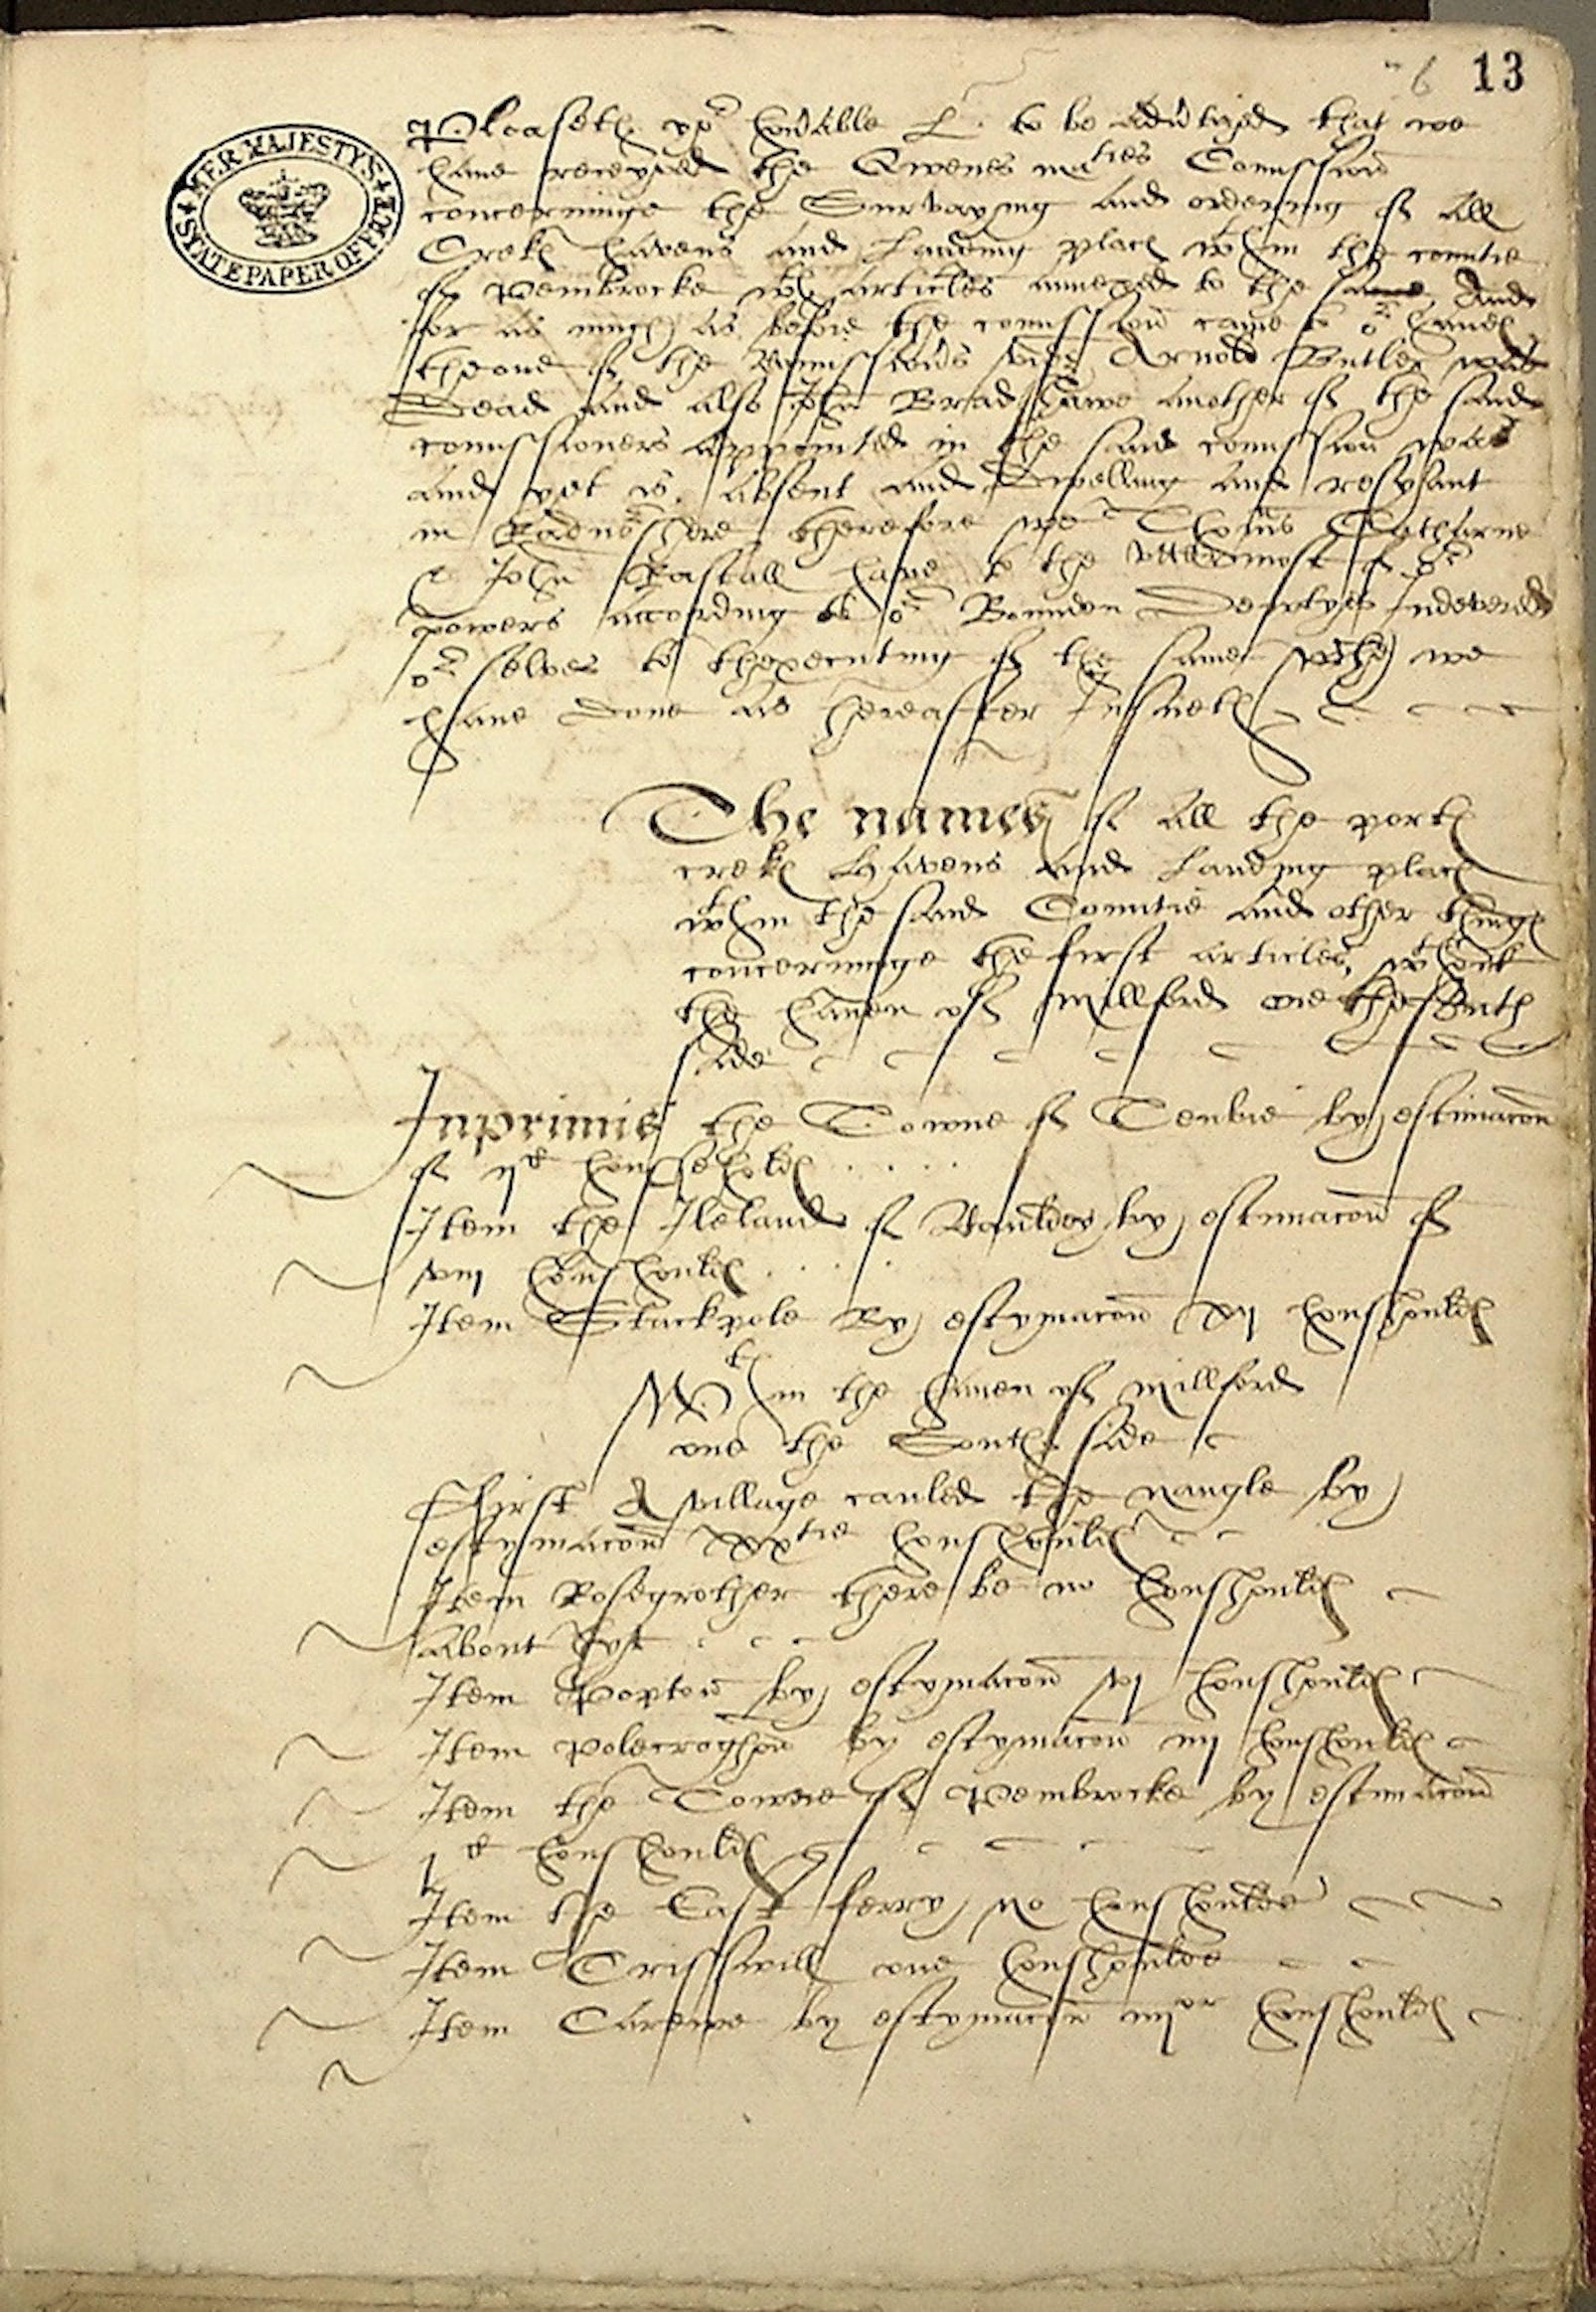 6 13
HER MAJESTY'S
STATE PAPER OFFICE
Pleaseth yor honable L. to be advertized that we
have receyved the Qwenes maties Comission
concerninge the Survaying and ordering of all
Crekes havens and landing places wthin the countie
of Pembrocke wth articles annexed to the same And
for as much as before the comission came to or handes
theone of the Comissioners Arnold Butler was
Dead and also John Bradshawe another of the said
comissioners appointed in the said comission was
and yet is absent and Dwelling and resyant
in Radnorshere therefore we Thomas Catharne
& John Rastall have to the uttermost of or
powers according to or Bounden Dewtyes Indevered
or selves to thexecuting of the same wche we
have done as hereafter Insueth
The names of all the portes
crekes Havens and Landing places
wthin the said Countie and other thinges
concerninge the first articles, wthout
the haven of Millford one the South
side
Inprimis the Towne of Tenbie by estimacon
of ijC housseholdes
Item the Ileland of Cauldey by estimacon of
viij houshouldes
Item Stackpole By estymacon xij houshouldes
Wth in the haven of Millford
one the South side
First A village cauled the nangle by
estymacon xxtie houshouldes
Item Rosegrother there be no houshouldes
about hyt
Item Popton by estymacon vj houshouldes
Item polecroghan by estymacon iiij houshouldes
Item the Towne of Pembrocke by estimacon
jC houshouldes
Item the East ferry no houshoulde
Item Crisswill one houshoulde
Item Carewe by estymacon iiijor houshouldes